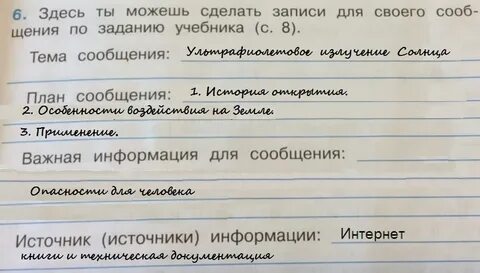 6. Здесь ты можешь сделать записи для своего сооб-
щения по заданию учебника (с. 8).
Тема сообщения: Ультрафиолетовое излучение Солнца
План сообщения: 1. История открытия.
2. Особенности воздействия на Земле.
3. Применение.
Важная информация для сообщения:
Опасности для человека
Источник (источники) информации: Интернет
книги и техническая документация